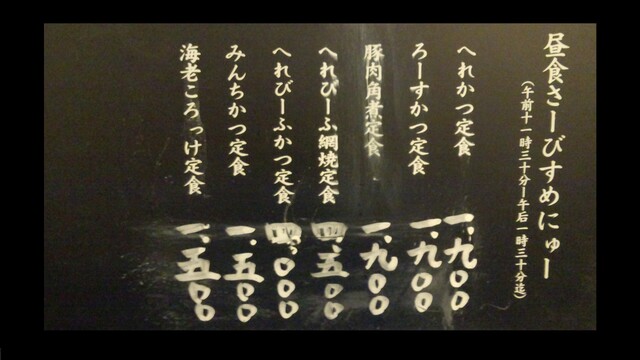 昼食さーびすめにゅー
(午前十一時三十分ー午后一時三十分迄)
へれかつ定食 一.九〇〇
ろーすかつ定食 一.九〇〇
豚肉角煮定食 一.九〇〇
へれびーふ網焼定食 .五〇〇
へれびーふかつ定食 .〇〇〇
みんちかつ定食 一.五〇〇
海老ころっけ定食 一.五〇〇